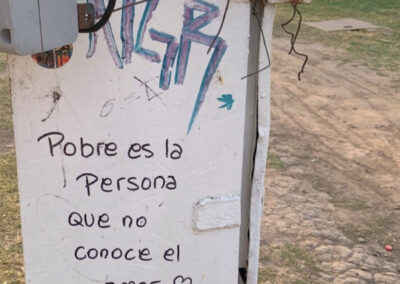 Pobre es la
Persona
que no
conoce el
amor